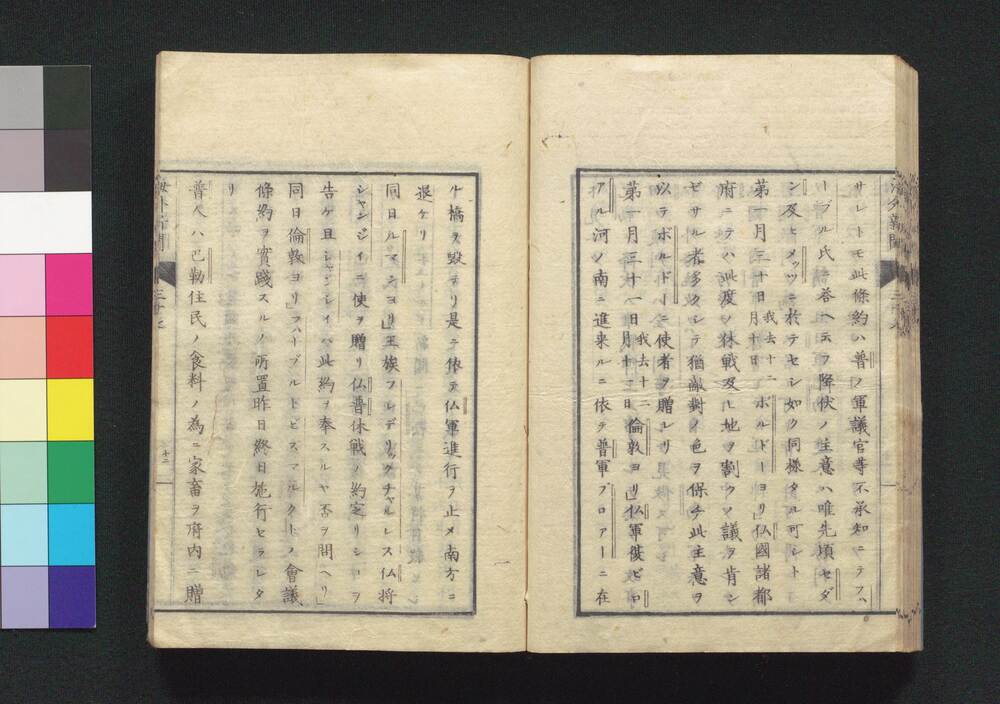 サレトモ此條約ハ普ノ軍議官等不承知ニテフハ
ーブル氏ニ荅ヘテフ降伏ノ主意ハ唯先頃セダ
ン及ヒメッツニ於テセシ如ク同様タル可シト
第一月三十日我去十二月十日ボルドーヨリ」仏國諸都
府ニテハ此度ノ休戰及ヒ地ヲ割クノ議ヲ肯ン
ゼサル者多クシテ猶敵對ノ色ヲ保チ此主意ヲ
以テボルドーニ使者ヲ贈レリ
第一月三十一日我去十二月十一日倫敦ヨリ」仏軍後ビロ
アル河ノ南ニ進来ルニ依テ普軍ブロアーニ在
ル橋ヲ毀テリ是ニ依テ仏軍進行ヲ止メ南方ニ
退ケリ
同日ルマンヨリ」王族フレデリックチャルレス仏将
シャンジイニ使ヲ贈リ仏普休戰ノ約定リシヿヲ
告ケ且シャンジイハ此約ヲ奉スルヤ否ヲ問ヘリ」
同日倫敦ヨリ」フハーブルトビスマルクトノ會議
條約ヲ實踐スルノ所置昨日終日施行セラレタ
リ
普人ハ巴勒住民ノ食料ノ為ニ家畜ヲ府内ニ贈
海外新聞